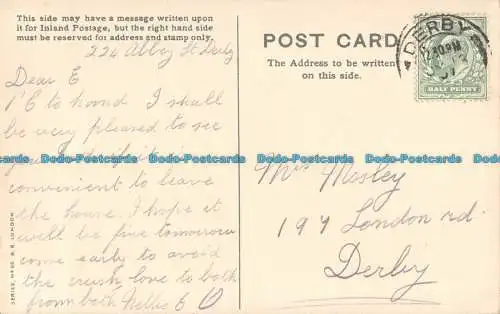 This side may have a message written upon
it for Inland Postage, but the right hand side
must be reserved for address and stamp only.
224 Abbey St Derby
Dear E
P'C to hand I shall
be very pleased to see
you if it is
convenient to leave
the house. I hope it
will be fine tomorrow
come early to avoid
the crush love to both
from both Nellie &
SERIES No 96 B.B. LONDON
POST CARD
The Address to be written
on this side.
DERBY
HALF PENNY
Mrs Mosley
197 London rd.
Derby
Adda-Postcards Adda-Postcards Adda-Postcards Adda-Postcards Adda-Postcards